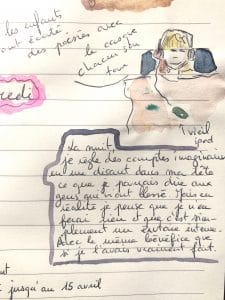 les enfants
ont écouté
des poésies avec
le casque
chacun son
tour
redi
1 vieil
jard
La nuit,
je règle des comptes imaginaires
en me disant dans ma tête
ce que je pourrais dire aux
gens qui m'ont blessé. Mais en
réalité je pense que je n'en
ferai rien et que c'est sim-
plement un exutoire intense.
Avec le même bénéfice que
si je l'avais vraiment fait.
jusqu'au 15 avril